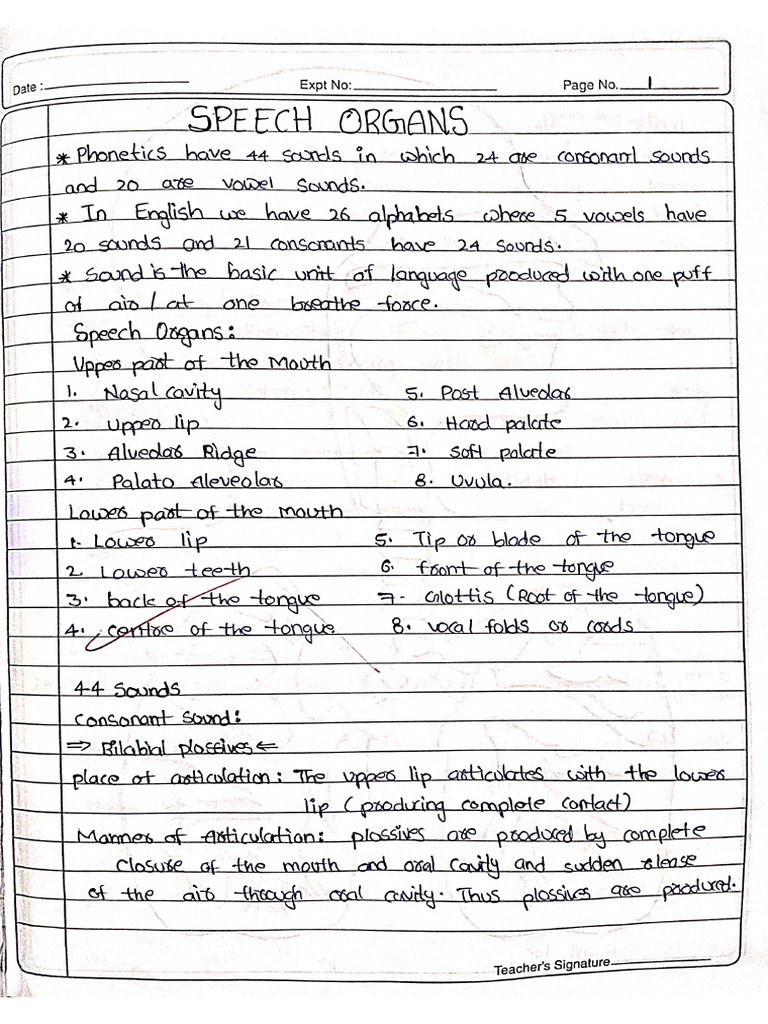 Date: Expt No: Page No. 1
SPEECH ORGANS
* Phonetics have 44 sounds in which 24 are consonant sounds
and 20 are vowel sounds.
* In English we have 26 alphabets where 5 vowels have
20 sounds and 21 consonants have 24 sounds.
* Sound is the basic unit of language produced with one puff
of air / at one breathe force.
Speech Organs:
Upper part of the Mouth
1. Nasal cavity 5. Post Alveolar
2. upper lip 6. Hard palate
3. Alveolar Ridge 7. Soft palate
4. Palato Aleveolar 8. Uvula.
Lower part of the mouth
1. Lower lip 5. Tip or blade of the tongue
2. Lower teeth 6. front of the tongue
3. back of the tongue 7. Glottis (Root of the tongue)
4. centre of the tongue 8. vocal folds or cords
44 Sounds
Consonant sound:
⇒ Bilabial plossives ⇐
place of articulation: The upper lip articulates with the lower
lip (producing complete contact)
Manner of Articulation: plossives are produced by complete
closure of the mouth and oral cavity and sudden release
of the air through oral cavity. Thus plossives are produced.
Teacher's Signature